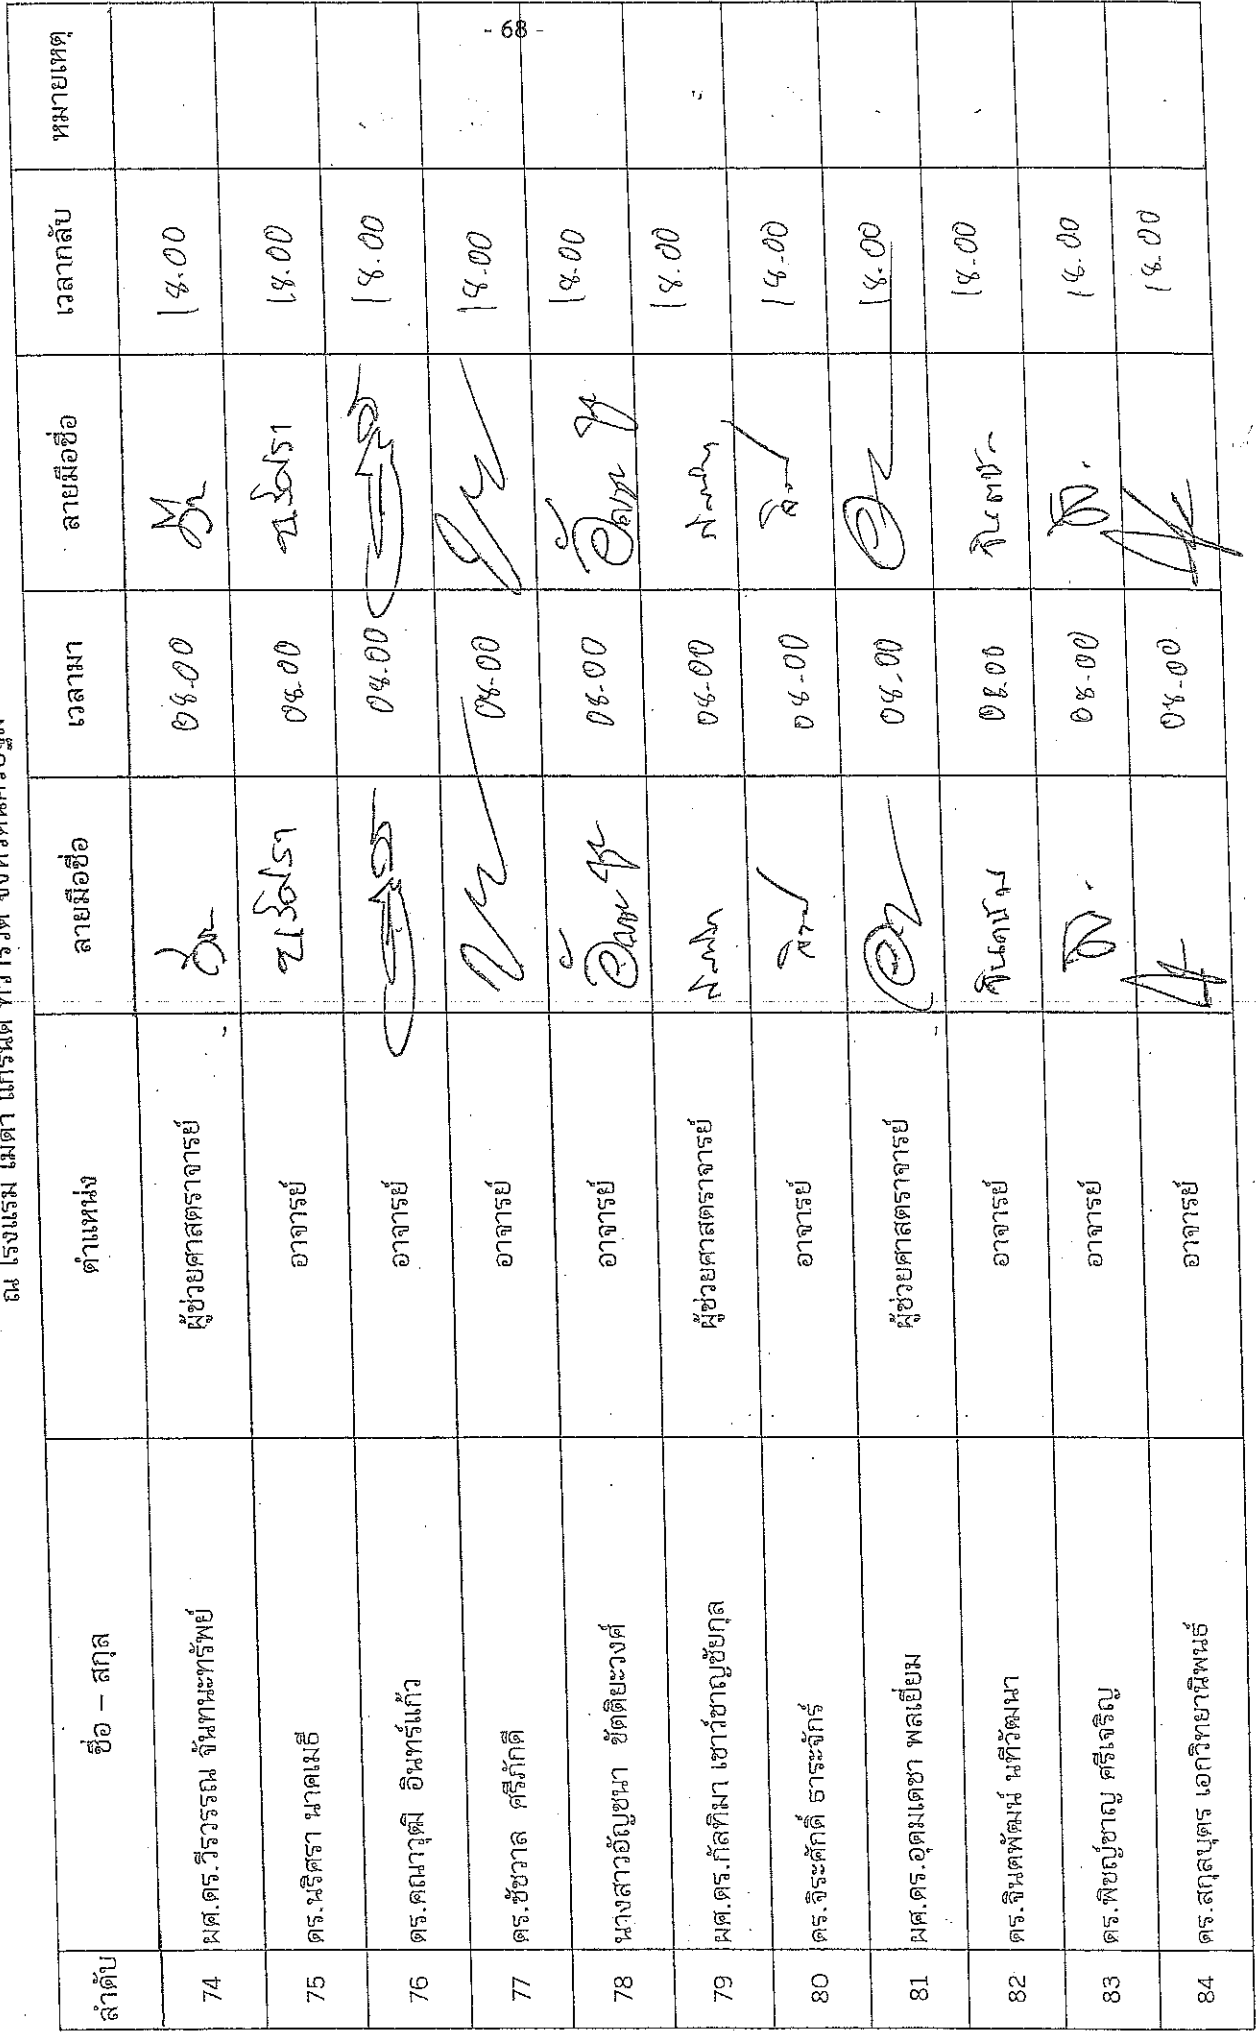 - 68 -
ณ โรงแรม เมดา แกรนด์ ทวารวดี จังหวัดนครปฐม
ลำดับ ชื่อ – สกุล ตำแหน่ง ลายมือชื่อ เวลามา ลายมือชื่อ เวลากลับ หมายเหตุ
74 ผศ.ดร.วีรวรรณ จันทนะทรัพย์ ผู้ช่วยศาสตราจารย์ 08.00 18.00
75 ดร.นริศรา นาคเมธี อาจารย์ นริศรา 08.00 นริศรา 18.00
76 ดร.คณาวุฒิ อินทร์แก้ว อาจารย์ 08.00 18.00
77 ดร.ชัชวาล ศรีภักดี อาจารย์ 08.00 18.00
78 นางสาวอัญชนา ขัตติยะวงศ์ อาจารย์ 08.00 18.00
79 ผศ.ดร.กัลทิมา เชาว์ชาญชัยกุล ผู้ช่วยศาสตราจารย์ 08.00 18.00
80 ดร.จิระศักดิ์ ธาระจักร์ อาจารย์ 08.00 18.00
81 ผศ.ดร.อุดมเดชา พลเยี่ยม ผู้ช่วยศาสตราจารย์ 08.00 18.00
82 ดร.จินตพัฒน์ นทีวัฒนา อาจารย์ 08.00 18.00
83 ดร.พิชญ์ชาญ ศรีเจริญ อาจารย์ 08.00 18.00
84 ดร.สกุลบุตร เอกวิทยานิพนธ์ อาจารย์ 08.00 18.00